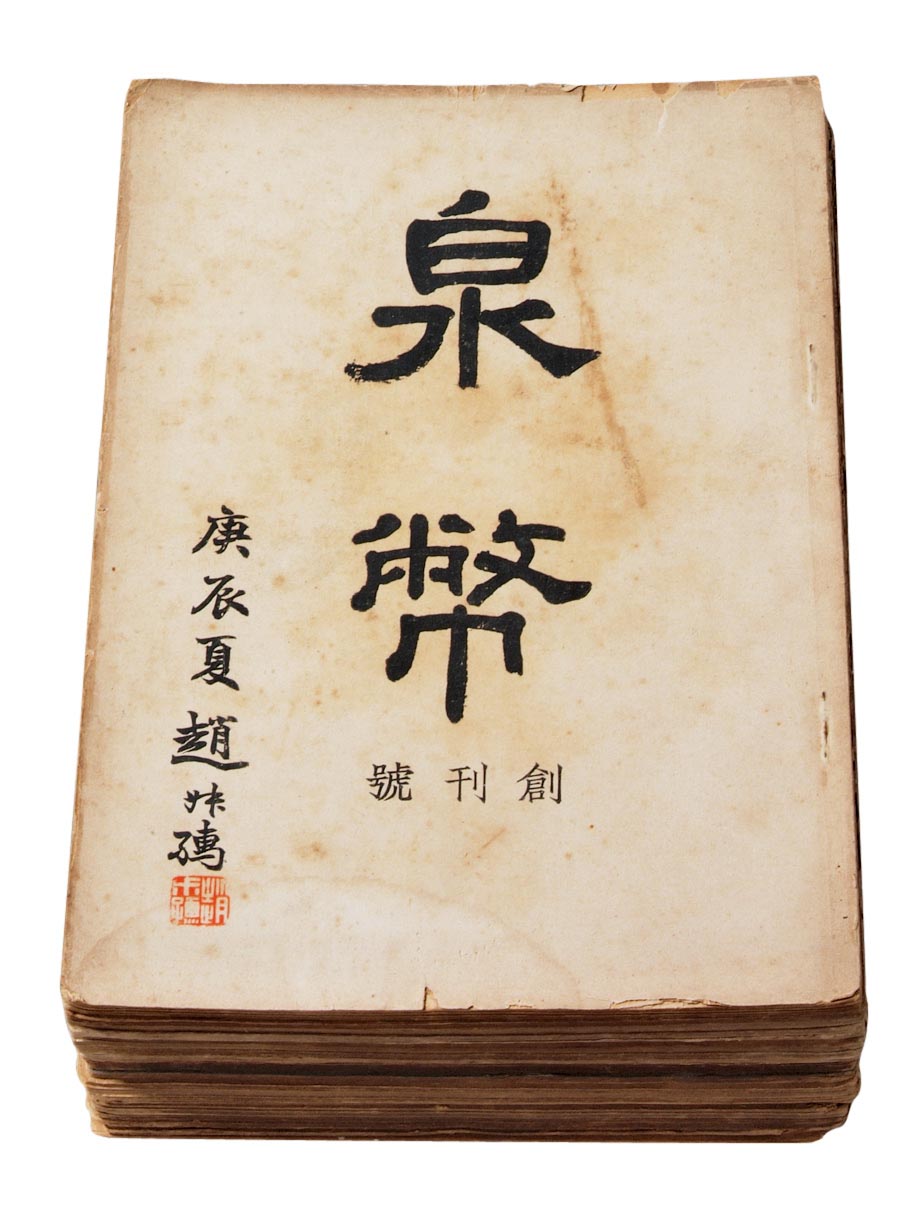 泉幣
創刊號
庚辰夏趙叔孺